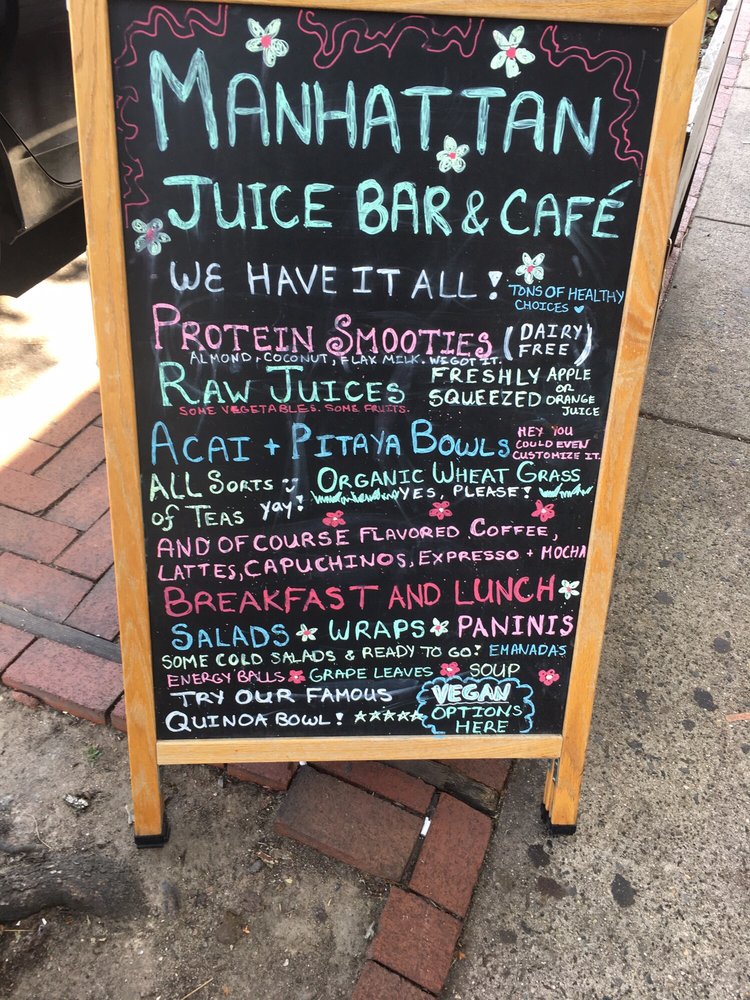 MANHATTAN
JUICE BAR & CAFÉ
WE HAVE IT ALL!
TONS OF HEALTHY
CHOICES
PROTEIN SMOOTIES (DAIRY FREE)
ALMOND, COCONUT, FLAX MILK. WE GOT IT.
RAW JUICES
SOME VEGETABLES. SOME FRUITS.
FRESHLY SQUEEZED
APPLE OR ORANGE JUICE
ACAI + PITAYA BOWLS
HEY YOU
COULD EVEN
CUSTOMIZE IT.
ALL SORTS
OF TEAS yay!
ORGANIC WHEAT GRASS
YES, PLEASE!
AND OF COURSE FLAVORED COFFEE,
LATTES, CAPUCHINOS, EXPRESSO + MOCHA
BREAKFAST AND LUNCH
SALADS WRAPS PANINIS
SOME COLD SALADS & READY TO GO! EMANADAS
ENERGY BALLS GRAPE LEAVES SOUP
TRY OUR FAMOUS
QUINOA BOWL!
VEGAN
OPTIONS
HERE